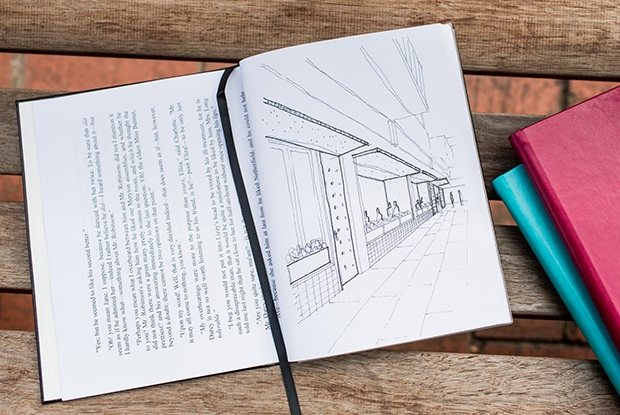 "Yes; but he seemed to like his second better."
"Oh! you mean Jane, I suppose, because he danced with her twice. To be sure that did
seem as if he admired her—indeed I rather believe he did—I heard something about it—but
I hardly know what—something about Mr. Robinson."
"Perhaps you mean what I overheard between him and Mr. Robinson; did not I mention it
to you? Mr. Robinson's asking him how he liked our Meryton assemblies, and whether he
did not think there were a great many pretty women in the room, and which he thought the
prettiest? and his answering immediately to the last question: 'Oh! the eldest Miss Bennet,
beyond a doubt; there cannot be two opinions on that point.'"
"Upon my word! Well, that is very decided indeed—that does seem as if—but, however,
it may all come to nothing, you know."
"My overhearings were more to the purpose than yours, Eliza," said Charlotte. "Mr.
Darcy is not so well worth listening to as his friend, is he?—poor Eliza!—to be only just
tolerable."
"I beg you would not put it into Lizzy's head to be vexed by his ill-treatment, for he is
such a disagreeable man, that it would be quite a misfortune to be liked by him. Mrs. Long
told me last night that he sat close to her for half-an-hour without once opening his lips."
"Are you quite sure, ma'am?
because she asked him at last how he liked Netherfield, and he could not help